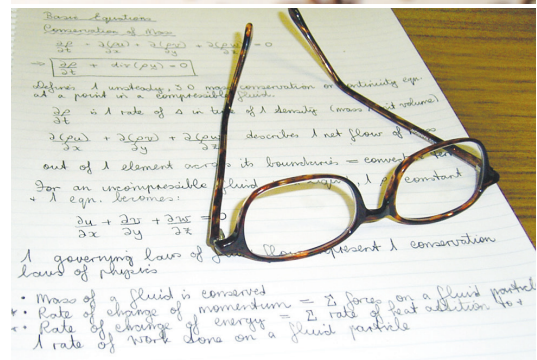 Basic Equations
Conservation of Mass
∂ρ/∂t + ∂(ρu)/∂x + ∂(ρv)/∂y + ∂(ρw)/∂z = 0
⇒ ∂ρ/∂t + div(ρu) = 0
Defines 1 unsteady, 3D mass conservation or continuity eqn.
at a point in a compressible fluid.
∂ρ/∂t is 1 rate of Δ in time of 1 density (mass unit volume)
∂(ρu)/∂x + ∂(ρv)/∂y + ∂(ρw)/∂z describes 1 net flow of mass
out of 1 element across its boundaries =
For an incompressible fluid 1 constant
+ 1 eqn. becomes:
∂u/∂x + ∂v/∂y + ∂w/∂z = 0
1 governing laws of flow represent 1 conservation
laws of physics
• Mass of a fluid is conserved
• Rate of change of momentum = Σ forces on a fluid particle
• Rate of change of energy = Σ rate of heat addition to +
1 rate of work done on a fluid particle